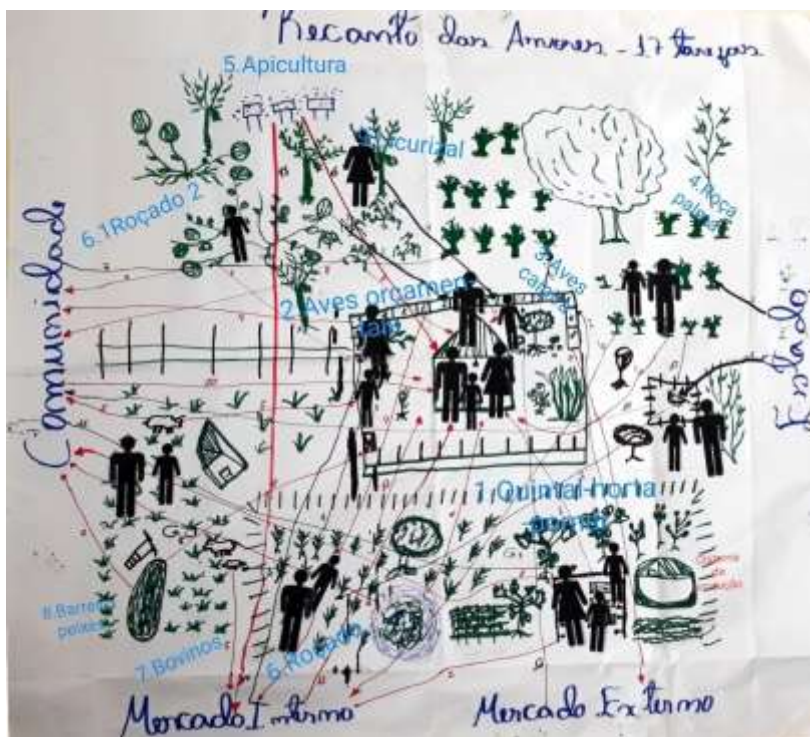 Recanto das Amores - 17 tarefas
5.Apicultura
4.Roça
palma
6.1Roçado 2
3.Aves
2.Aves
Comunidade
Estado
1.Quintal-horta
8.Barreiro
peixes
7.Bovinos
6.Roçado
Mercado Interno
Mercado Externo